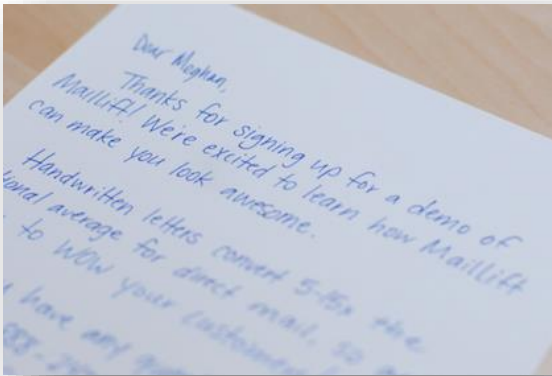 Dear Meghan,
Thanks for signing up for a demo of
Maillift! We're excited to learn how Maillift
can make you look awesome.
Handwritten letters convert 5-15x the
tional average for direct mail, so
to WOW your customers
have any